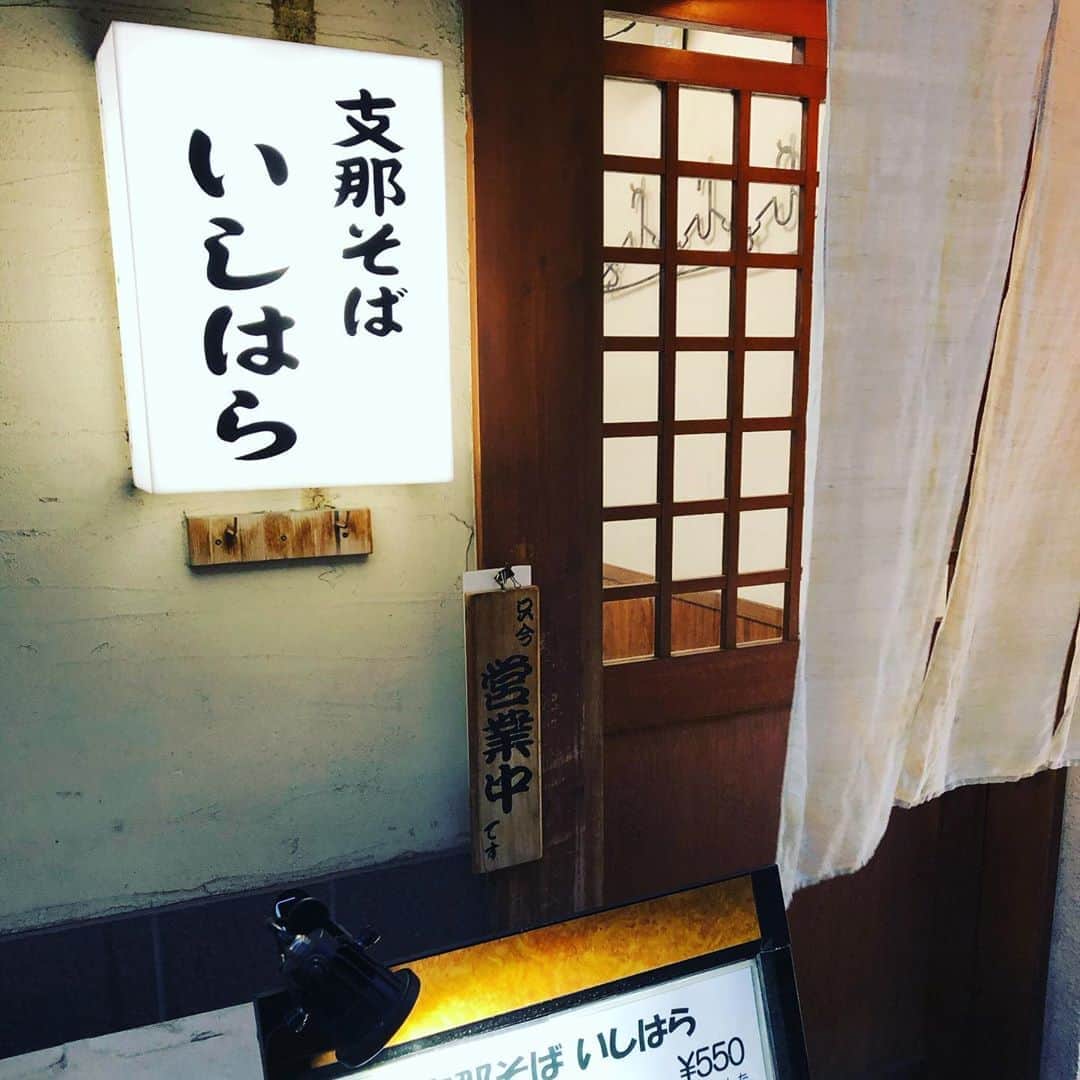 支那そば
いしはら
只今
営業中
です
那そば いしはら
¥550